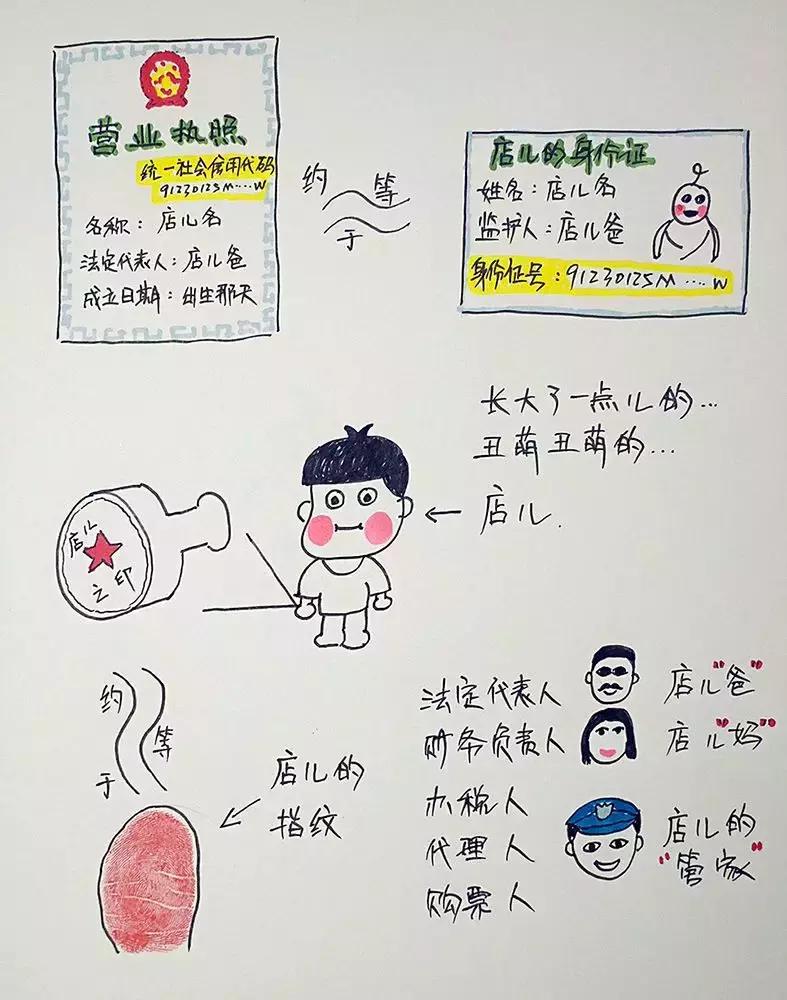 营业执照
统一社会信用代码
91230125M....W
名称：店儿名
法定代表人：店儿爸
成立日期：出生那天
约等于
店儿的身份证
姓名：店儿名
监护人：店儿爸
身份证号：91230125M....W
长大了一点儿的...
丑萌丑萌的...
店儿.
店儿
之印
约等于
店儿的
指纹
法定代表人 店儿"爸"
财务负责人 店儿"妈"
办税人
代理人
购票人
店儿的
"管家"